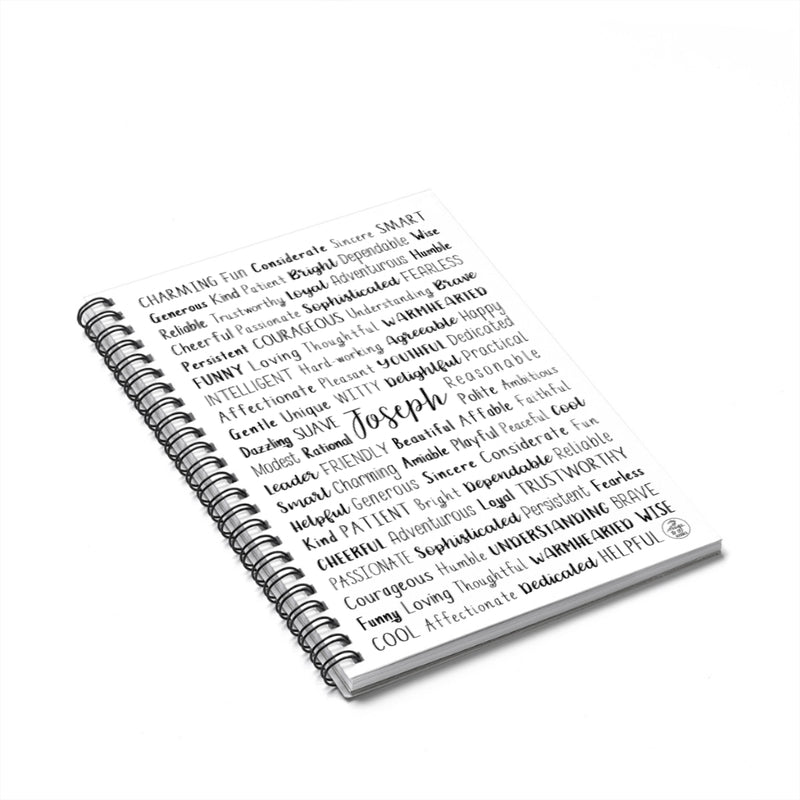 CHARMING Fun Considerate Sincere SMART
Generous Kind Patient Bright Dependable Wise
Reliable Trustworthy Loyal Adventurous Humble
Cheerful Passionate Sophisticated FEARLESS
Persistent COURAGEOUS Understanding Brave
FUNNY Loving Thoughtful WARMHEARTED
INTELLIGENT Hard-working Agreeable Happy
Affectionate Pleasant YOUTHFUL Dedicated
Gentle Unique WITTY Delightful Practical
Dazzling SUAVE Joseph Reasonable
Modest Rational Polite Ambitious
Leader FRIENDLY Beautiful Affable Faithful
Smart Charming Amiable Playful Peaceful Cool
Helpful Generous Sincere Considerate Fun
Kind PATIENT Bright Dependable Reliable
CHEERFUL Adventurous Loyal TRUSTWORTHY
PASSIONATE Sophisticated Persistent Fearless
Courageous Humble UNDERSTANDING BRAVE
Funny Loving Thoughtful WARMHEARTED WISE
COOL Affectionate Dedicated HELPFUL